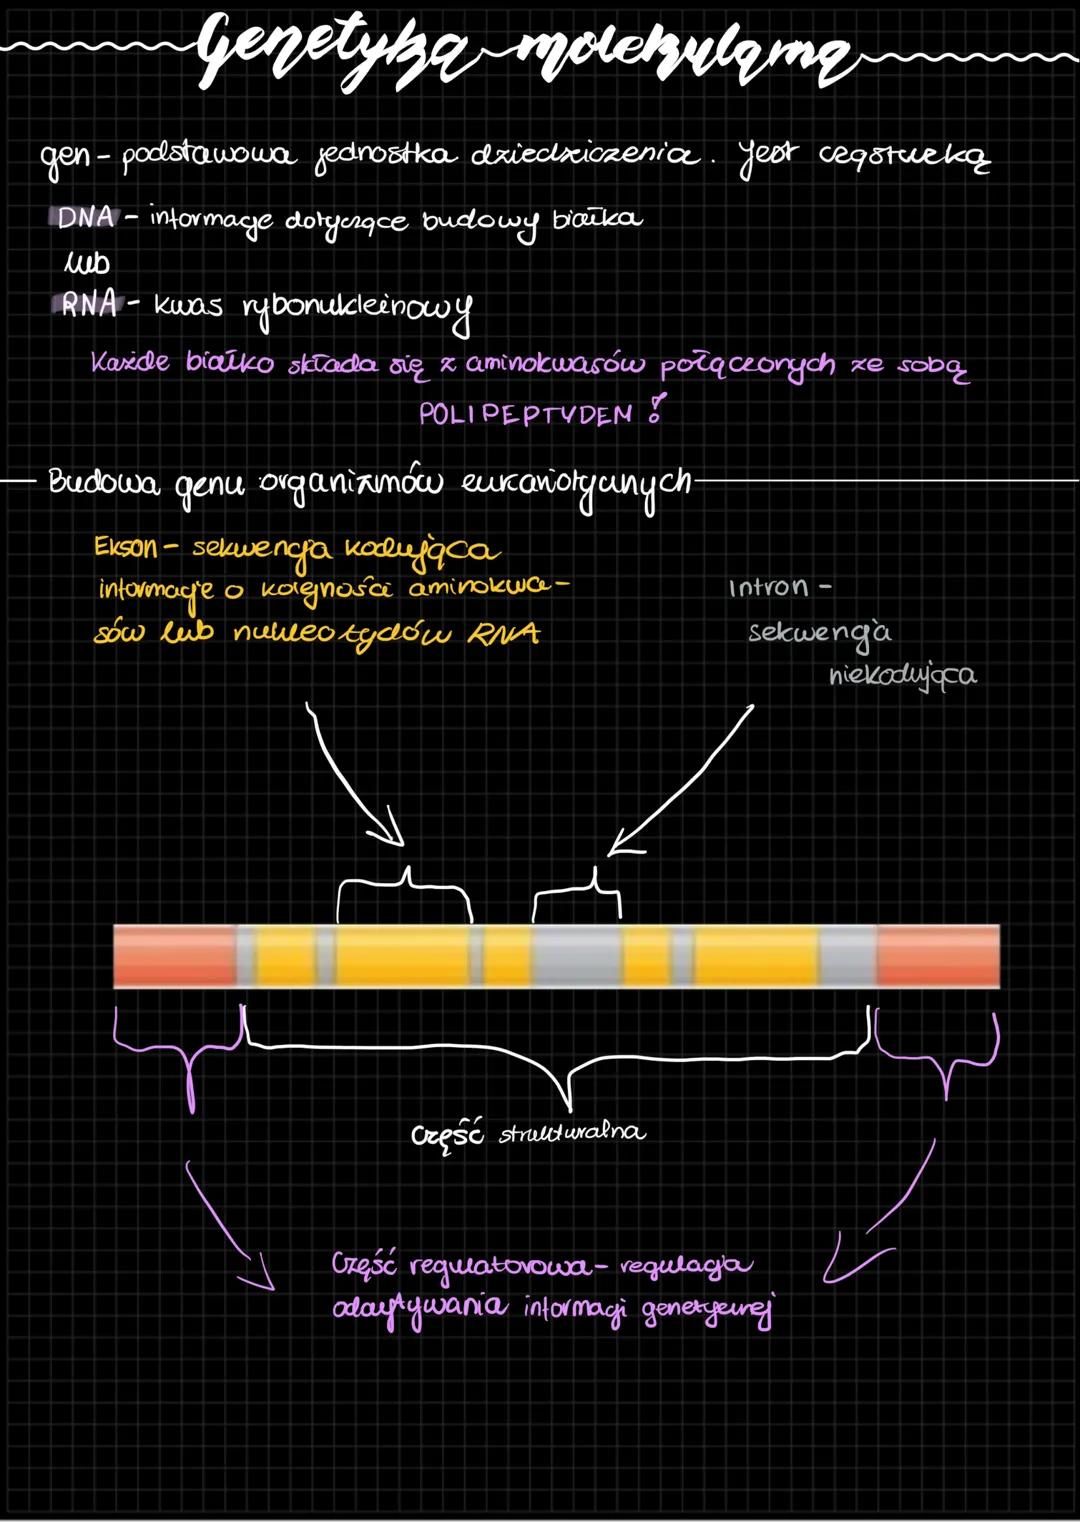 Genetyka molekularna
gen - podstawowa jednostka dziedziczenia. Jest cząsteczką
DNA - informacje dotyczące budowy białka
lub
RNA - kwas rybonukleinowy
Każde białko składa się z aminokwasów połączonych ze sobą
POLIPEPTYDEM!
Budowa genu organizmów eukariotycznych
Ekson - sekwencja kodująca
informacje o kolejności aminokwa-
sów lub nukleotydów RNA
Intron -
sekwencja
niekodująca
Część strukturalna
Część regulatorowa - regulacja
odczytywania informacji genetycznej